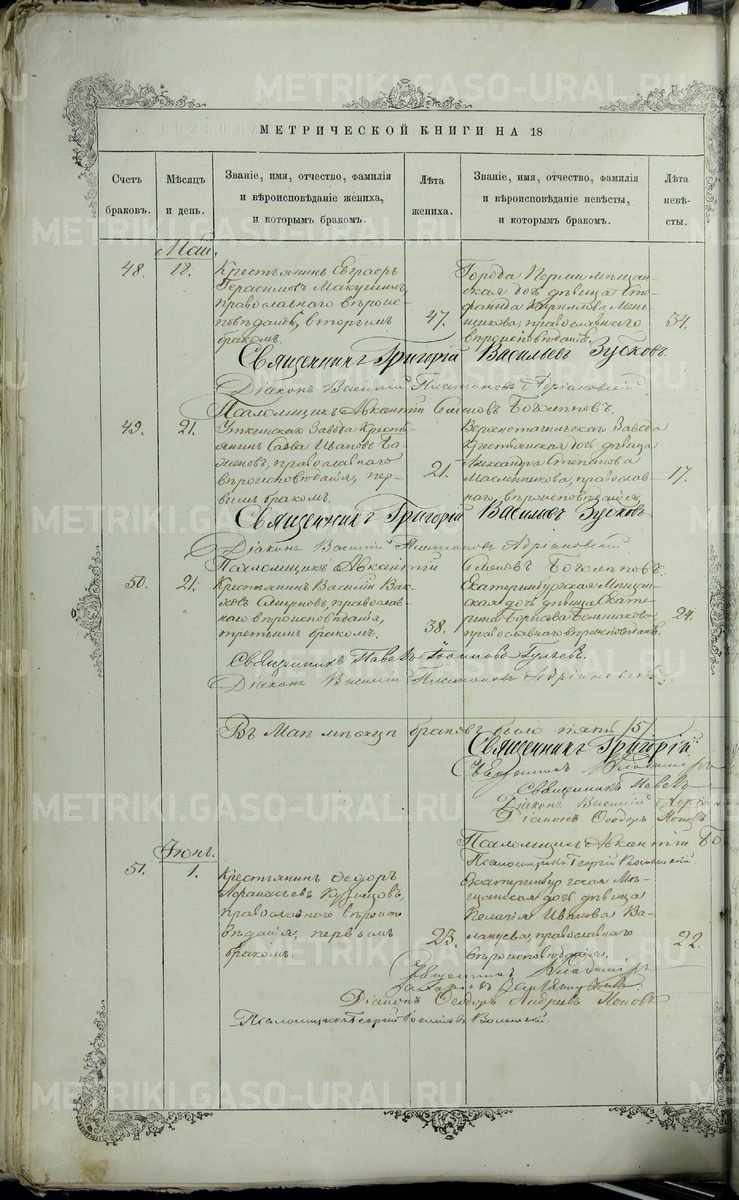 МЕТРИЧЕСКОЙ КНИГИ НА 18
Счетъ браковъ.
Мѣсяцъ и день.
Званіе, имя, отчество, фамилія
и вѣроисповѣданіе жениха,
и которымъ бракомъ.
Лѣта жениха.
Званіе, имя, отчество, фамилія
и вѣроисповѣданіе невѣсты,
и которымъ бракомъ.
Лѣта невѣ-
сты.
Маій.
48. 18.
Крестьянинъ Евграфъ
Герасимовъ Макушинъ,
православнаго вѣроис-
повѣданія, вторымъ
бракомъ.
47.
Города Перми мѣщан-
ская дочь дѣвица Сте-
фанида Кирилова Мень-
шикова, православнаго
вѣроисповѣданія.
34.
Священникъ Григорій Васильевъ Зубковъ.
Діаконъ Василій Адріановскій
Псаломщикъ Авксентій Семеновъ Боголѣповъ.
49. 21.
Уткинскаго Завода Кресть-
янинъ Савва Ивановъ
православнаго
вѣроисповѣданія, пер-
вымъ бракомъ.
21.
Верхнетагильскаго Завода
Крестьянская дочь дѣвица
Александра Степанова
Масленникова, православ-
наго вѣроисповѣданія.
17.
Священникъ Григорій Васильевъ Зубковъ
Діаконъ Василій Адріановскій
Псаломщикъ Авксентій Семеновъ Боголѣповъ.
50. 21.
Крестьянинъ Василій
Смирновъ, православ-
наго вѣроисповѣданія,
третьимъ бракомъ.
38.
Екатеринбургская Мѣщан-
ская дочь дѣвица Екате-
рина Борисова Большакова
православнаго вѣроисповѣданія.
24.
Священникъ Павелъ
Діаконъ Василій Адріановскій
Въ Маѣ мѣсяцѣ браковъ было пять /5/
Священникъ Григорій
Священникъ Владиміръ
Священникъ Павелъ
Діаконъ Василій
Діаконъ Ѳеодоръ Поповъ
Псаломщикъ Авксентій Бо
Псаломщикъ Георгій
Іюнь.
51. 1.
Крестьянинъ Ѳедоръ
Афанасьевъ Кузнецовъ,
православнаго вѣроиспо-
вѣданія, первымъ
бракомъ.
23.
Екатеринбургская Мѣ-
щанская дочь дѣвица
Пелагія Иванова Ва-
лахуева, православнаго
вѣроисповѣданія.
22.
Священникъ Владиміръ
Діаконъ Ѳеодоръ Андреевъ Поповъ
Псаломщикъ Георгій
METRIKI.GASO-URAL.RU